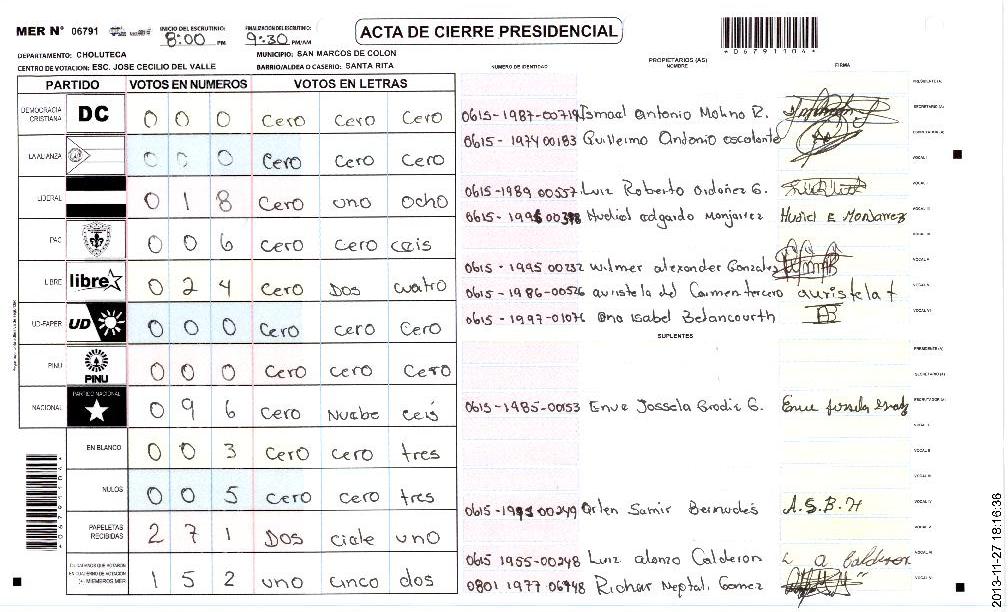 MER Nº 06791 INICIO DEL ESCRUTINIO: 8:00 PM FINALIZACION DEL ESCRUTINIO: 9:30 PM/AM ACTA DE CIERRE PRESIDENCIAL
DEPARTAMENTO: CHOLUTECA MUNICIPIO: SAN MARCOS DE COLON
CENTRO DE VOTACION: ESC. JOSE CECILIO DEL VALLE BARRIO/ALDEA O CASERIO: SANTA RITA
PARTIDO VOTOS EN NUMEROS VOTOS EN LETRAS
DEMOCRACIA CRISTIANA DC 0 0 0 Cero Cero Cero
LA ALIANZA 0 0 0 Cero Cero Cero
LIBERAL 0 1 8 Cero uno ocho
PAC 0 0 6 Cero Cero ceis
LIBRE libre 0 2 4 Cero Dos cuatro
UD-FAPER UD 0 0 0 Cero Cero Cero
PINU PINU 0 0 0 Cero Cero Cero
NACIONAL PARTIDO NACIONAL 0 9 6 Cero Nuebe ceis
EN BLANCO 0 0 3 Cero Cero tres
NULOS 0 0 5 Cero Cero tres
PAPELETAS RECIBIDAS 2 7 1 Dos ciete uno
CIUDADANOS QUE VOTARON EN CUADERNO DE VOTACION (+ MIEMBROS MER) 1 5 2 uno cinco dos
*06791104*
NUMERO DE IDENTIDAD PROPIETARIOS (AS) NOMBRE FIRMA
PRESIDENTE(A)
0615-1987-00719 Ismael Antonio Molino R. SECRETARIO (A)
0615-1974 00183 Guillermo Antonio escolante
VOCAL I
0615-1989 00557 Luiz Roberto Ordoñez G.
edgardo Monjarrez
0615-1995 00232 Wilmer alexander Gonzales
0615-1986-00526 auristela del Carmen tercero auristela t
0615-1997-01076 Ana Isabel Betancourth
SUPLENTES
PRESIDENTE (A)
SECRETARIO (A)
0615-1985-00153 Enue Jossela G. ESCRUTADOR (A)
00249 Orlen Samir Bermudes A.S.B.H
0615 1955-00248 Luiz alonzo Calderon L a Calderon
0801 1977 Richar Neptal. Gomez
2013-11-27 18:16:36